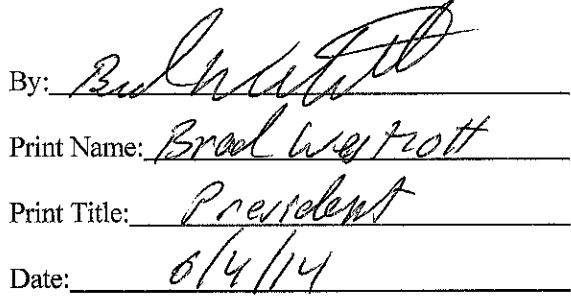 By: Brad Westrott
Print Name: Brad Westrott
Print Title: President
Date: 6/4/14